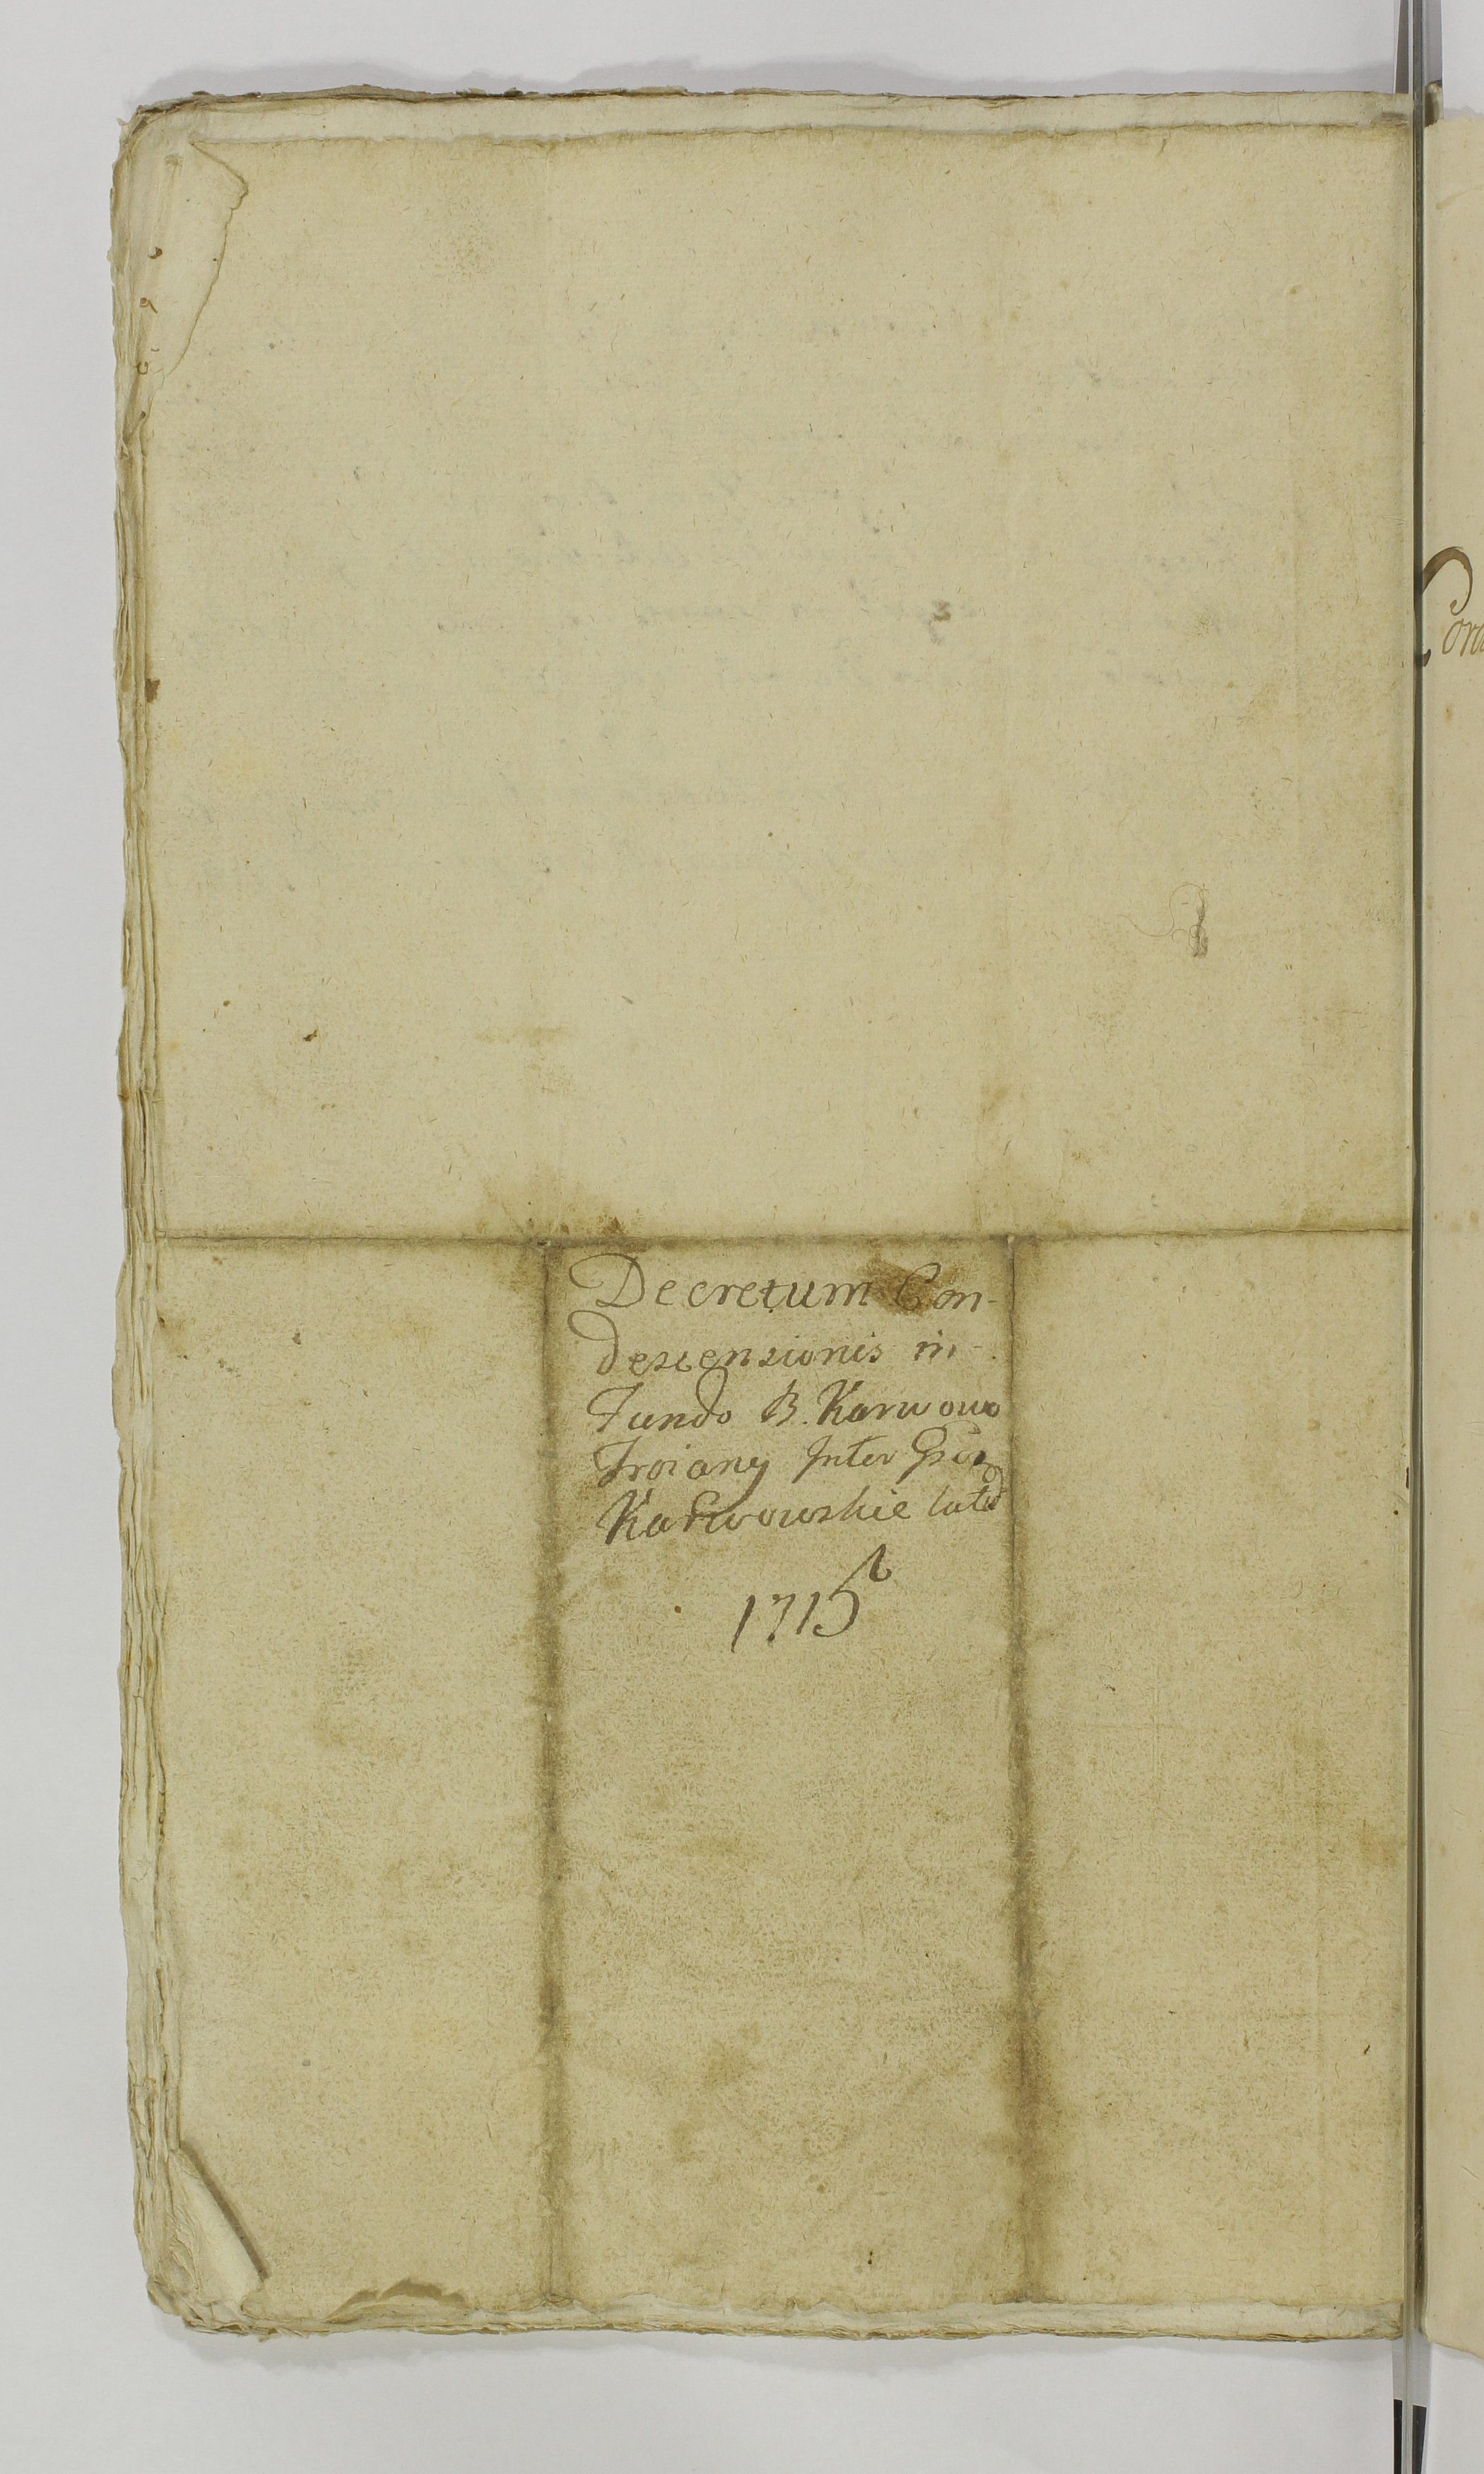 Decretum Con-
descensionis in
Fundo B. Karwowo
Troiany Inter Gsos
Karwowskie latu
1715
Con